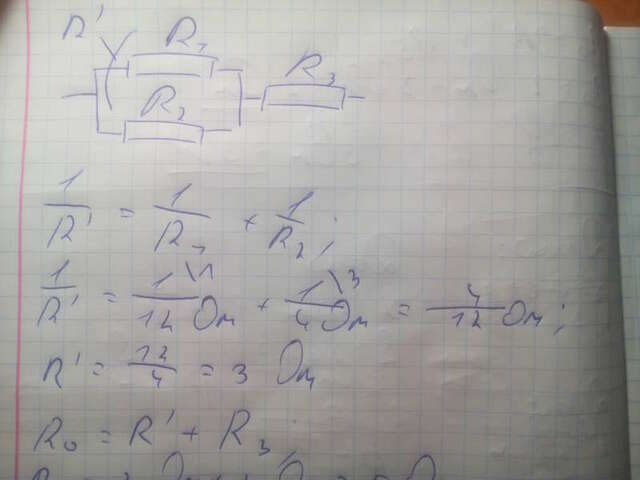 R'
R₁
R₂
R₃
1/R' = 1/R₁ + 1/R₂;
1/R' = 1\1/12 Ом + 1\3/4 Ом = 4/12 Ом;
R' = 12/4 = 3 Ом
R₀ = R' + R₃;